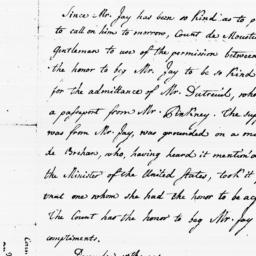 Since Mr. Jay has been so kind as to p
to call on him to morrow, Count de Moust
gentlemen to use of the permission between
the honor to beg Mr. Jay to be so kind
for the admittance of Mr. Dutreuil, who
a passport from Mr. Pinkney. The sup
was from Mr. Jay, was grounded on a m
de Brehan, who, having heard it mention'd
the Minister of the United States, took it
one whom she had the honor to be ac
The Count has the honor to beg Mr. Jay
compliments.